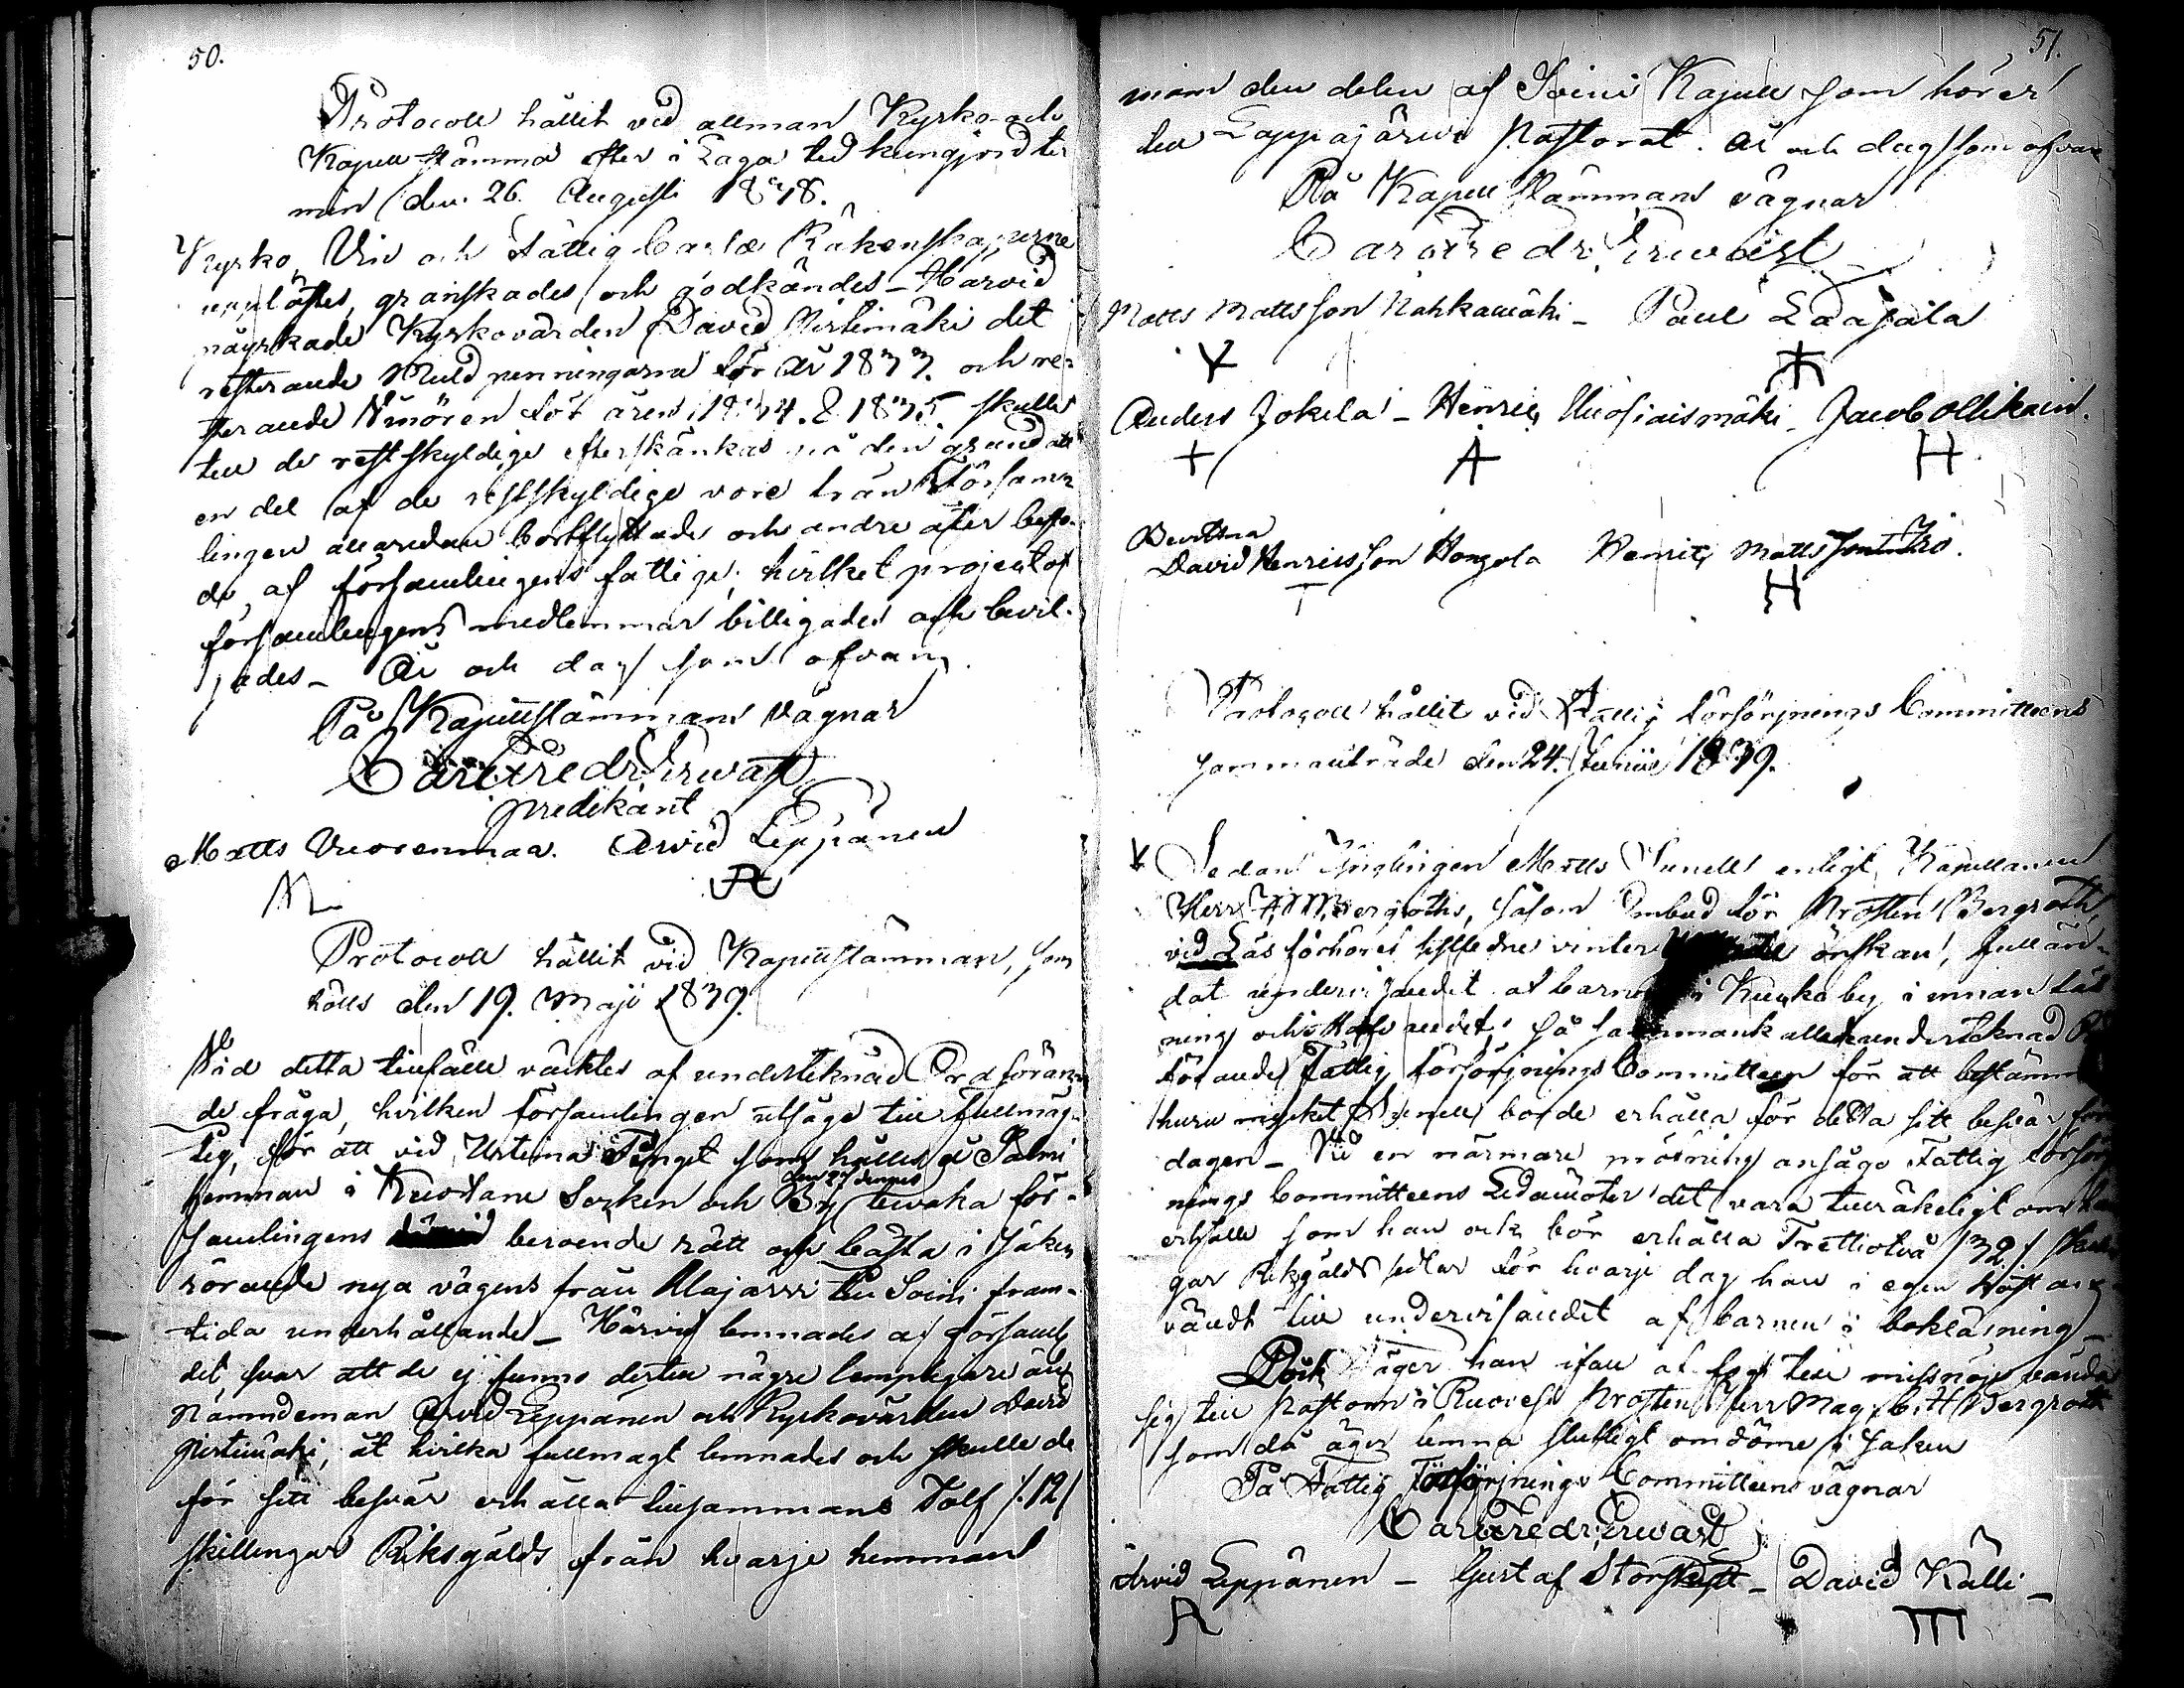 50.
Protocoll hållit vid allman Kyrko och
Kapell stämma efter i Laga tid kungjord ter
min den 26. Augusti 1838.
Kyrko, Vin och Fattig Cassæ Räkenskaperne
upplästes, granskades och godkändes – Härvid
påyrkade Kyrkovärden David Pirtimäki det
resterande Muld penningarna för år 1833. och re-
sterande Smören för åren 1834. & 1835 skulle
till de restskyldige efterskänkas på den grund att
en del af de restskyldige vore från Försam-
lingen allaredan bortflyttade och andre åter besto-
de af församlingens fattige, hvilket project af
församlingens medlemmar billigades och bevil-
jades – År och dag som ofvan,
På Kapellstämmans vägnar
Carl Fredr. Sirwast
predikant
Matts Vuorenmaa. Arvid Leppänen
Protocoll hållit vid Kapellstämman, som
hölls den 19. Maji 1839.
Vid detta tillfälle väcktes af underteknad Ordföran-
de fråga, hvilken församlingen utsåge till fullmäg-
tig, för att vid Urtima Tinget som hålles å Salmi
den 27 dennes
hemman i Kuortane Socken och By bevaka för-
samlingens beroende rätt och bästa i saken
rörande nya vägens från Alajärvi till Soini fram-
tida underhållande – Härvid lemnades af Församl
det svar att de ej funno dertill någre lämpligare än
Nämndeman Arvid Leppänen och Kyrkovärden David
Pirtimäki, åt hvilka fullmagt lemnades och skulle de
för sitt besvär erhålla tillsammans Tolf /.12/
skillingar Riksgälds från hvarje hemman
51.
inom den delen af Soini Kapell som hörer
till Lappajärvi Pastorat. År och dag som ofvan
På Kapell stämmans vägnar
Carl Fredr. Sirwast
Matts Mattsson Nahkamäki – Paul Laasala
Anders Jokela – Henric Kuosiaismäki – Jacob Ollikain.
Bevittna
David Henricsson Hongola Henric Mattsson Iso.
Protocoll hållit vid Fattig försörjnings Committeens
sammanträde den 24. Junii 1839.
Sedan Ynglingen Matts Sunell enligt Kapellanen
Herr Bergroths, såsom Ombud för Prosten Bergroth
vid Läsförhöret sistledne vinter önskan, fullän-
dat undervisandet af barnen i Kuuka by i innan läs
ning och så sammankallade underteknad
förande Fattig försörjnings Committeen för att bestämma
huru mycket Sunell borde erhålla för detta sitt besvär
dagen – Vid en närmare pröfning ansågo Fattig försörj
nings Committeens Ledamöter det vara tillräkeligt om han
erhölle som han ock bör erhålla Trettiotvå /32/ skillin-
gar Riksgälds sedlar för hvarje dag han i egen kost an-
vändt till undervisandet af barnen i bokläsning
Dock äger han ifall af fogd till missnöje vända
sig till Pastorn i Ruovesi Prosten Herr Mag. Bergroth
som då äger lemna slutligt omdöme i saken
På Fattig Försörjnings Committeens vägnar
Carl Fredr. Sirwast
Arvid Leppänen – Gustaf – David Källi –